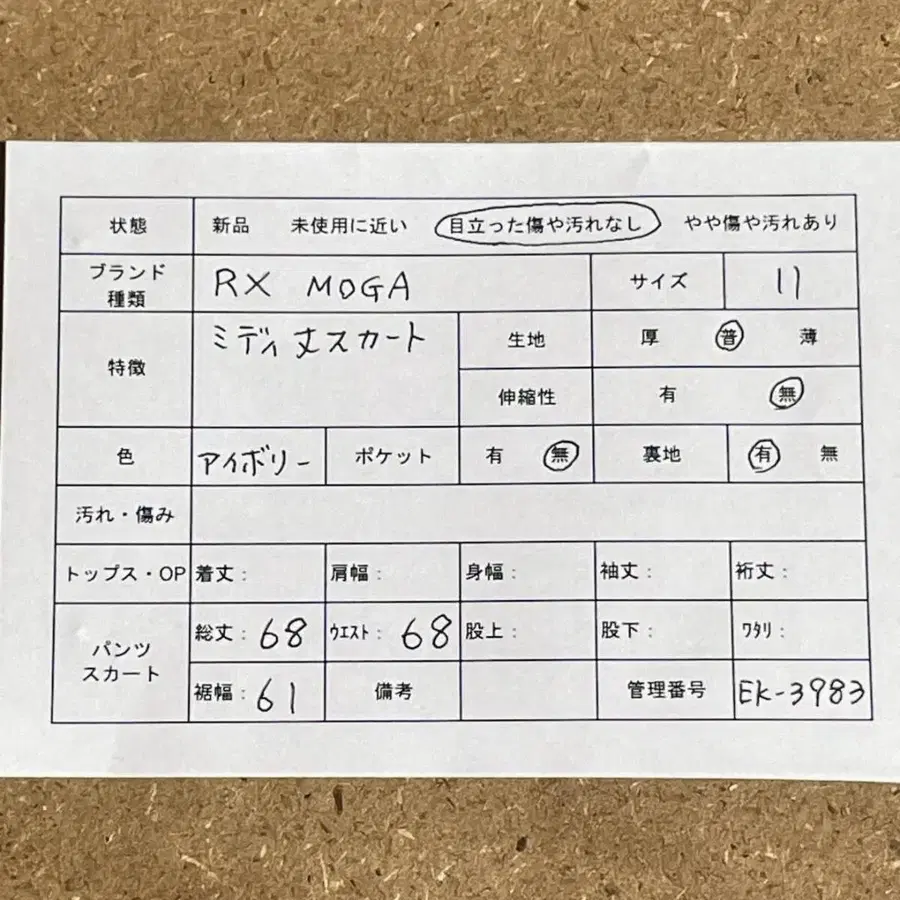 状態 新品 未使用に近い 目立った傷や汚れなし やや傷や汚れあり
ブランド
種類 RX MOGA サイズ 11
特徴 ミディ丈スカート 生地 厚 普 薄
伸縮性 有 無
色 アイボリー ポケット 有 無 裏地 有 無
汚れ・傷み
トップス・OP 着丈: 肩幅: 身幅: 袖丈: 裄丈:
パンツ
スカート 総丈: 68 ウエスト: 68 股上: 股下: ワタリ:
裾幅: 61 備考 管理番号 EK-3983